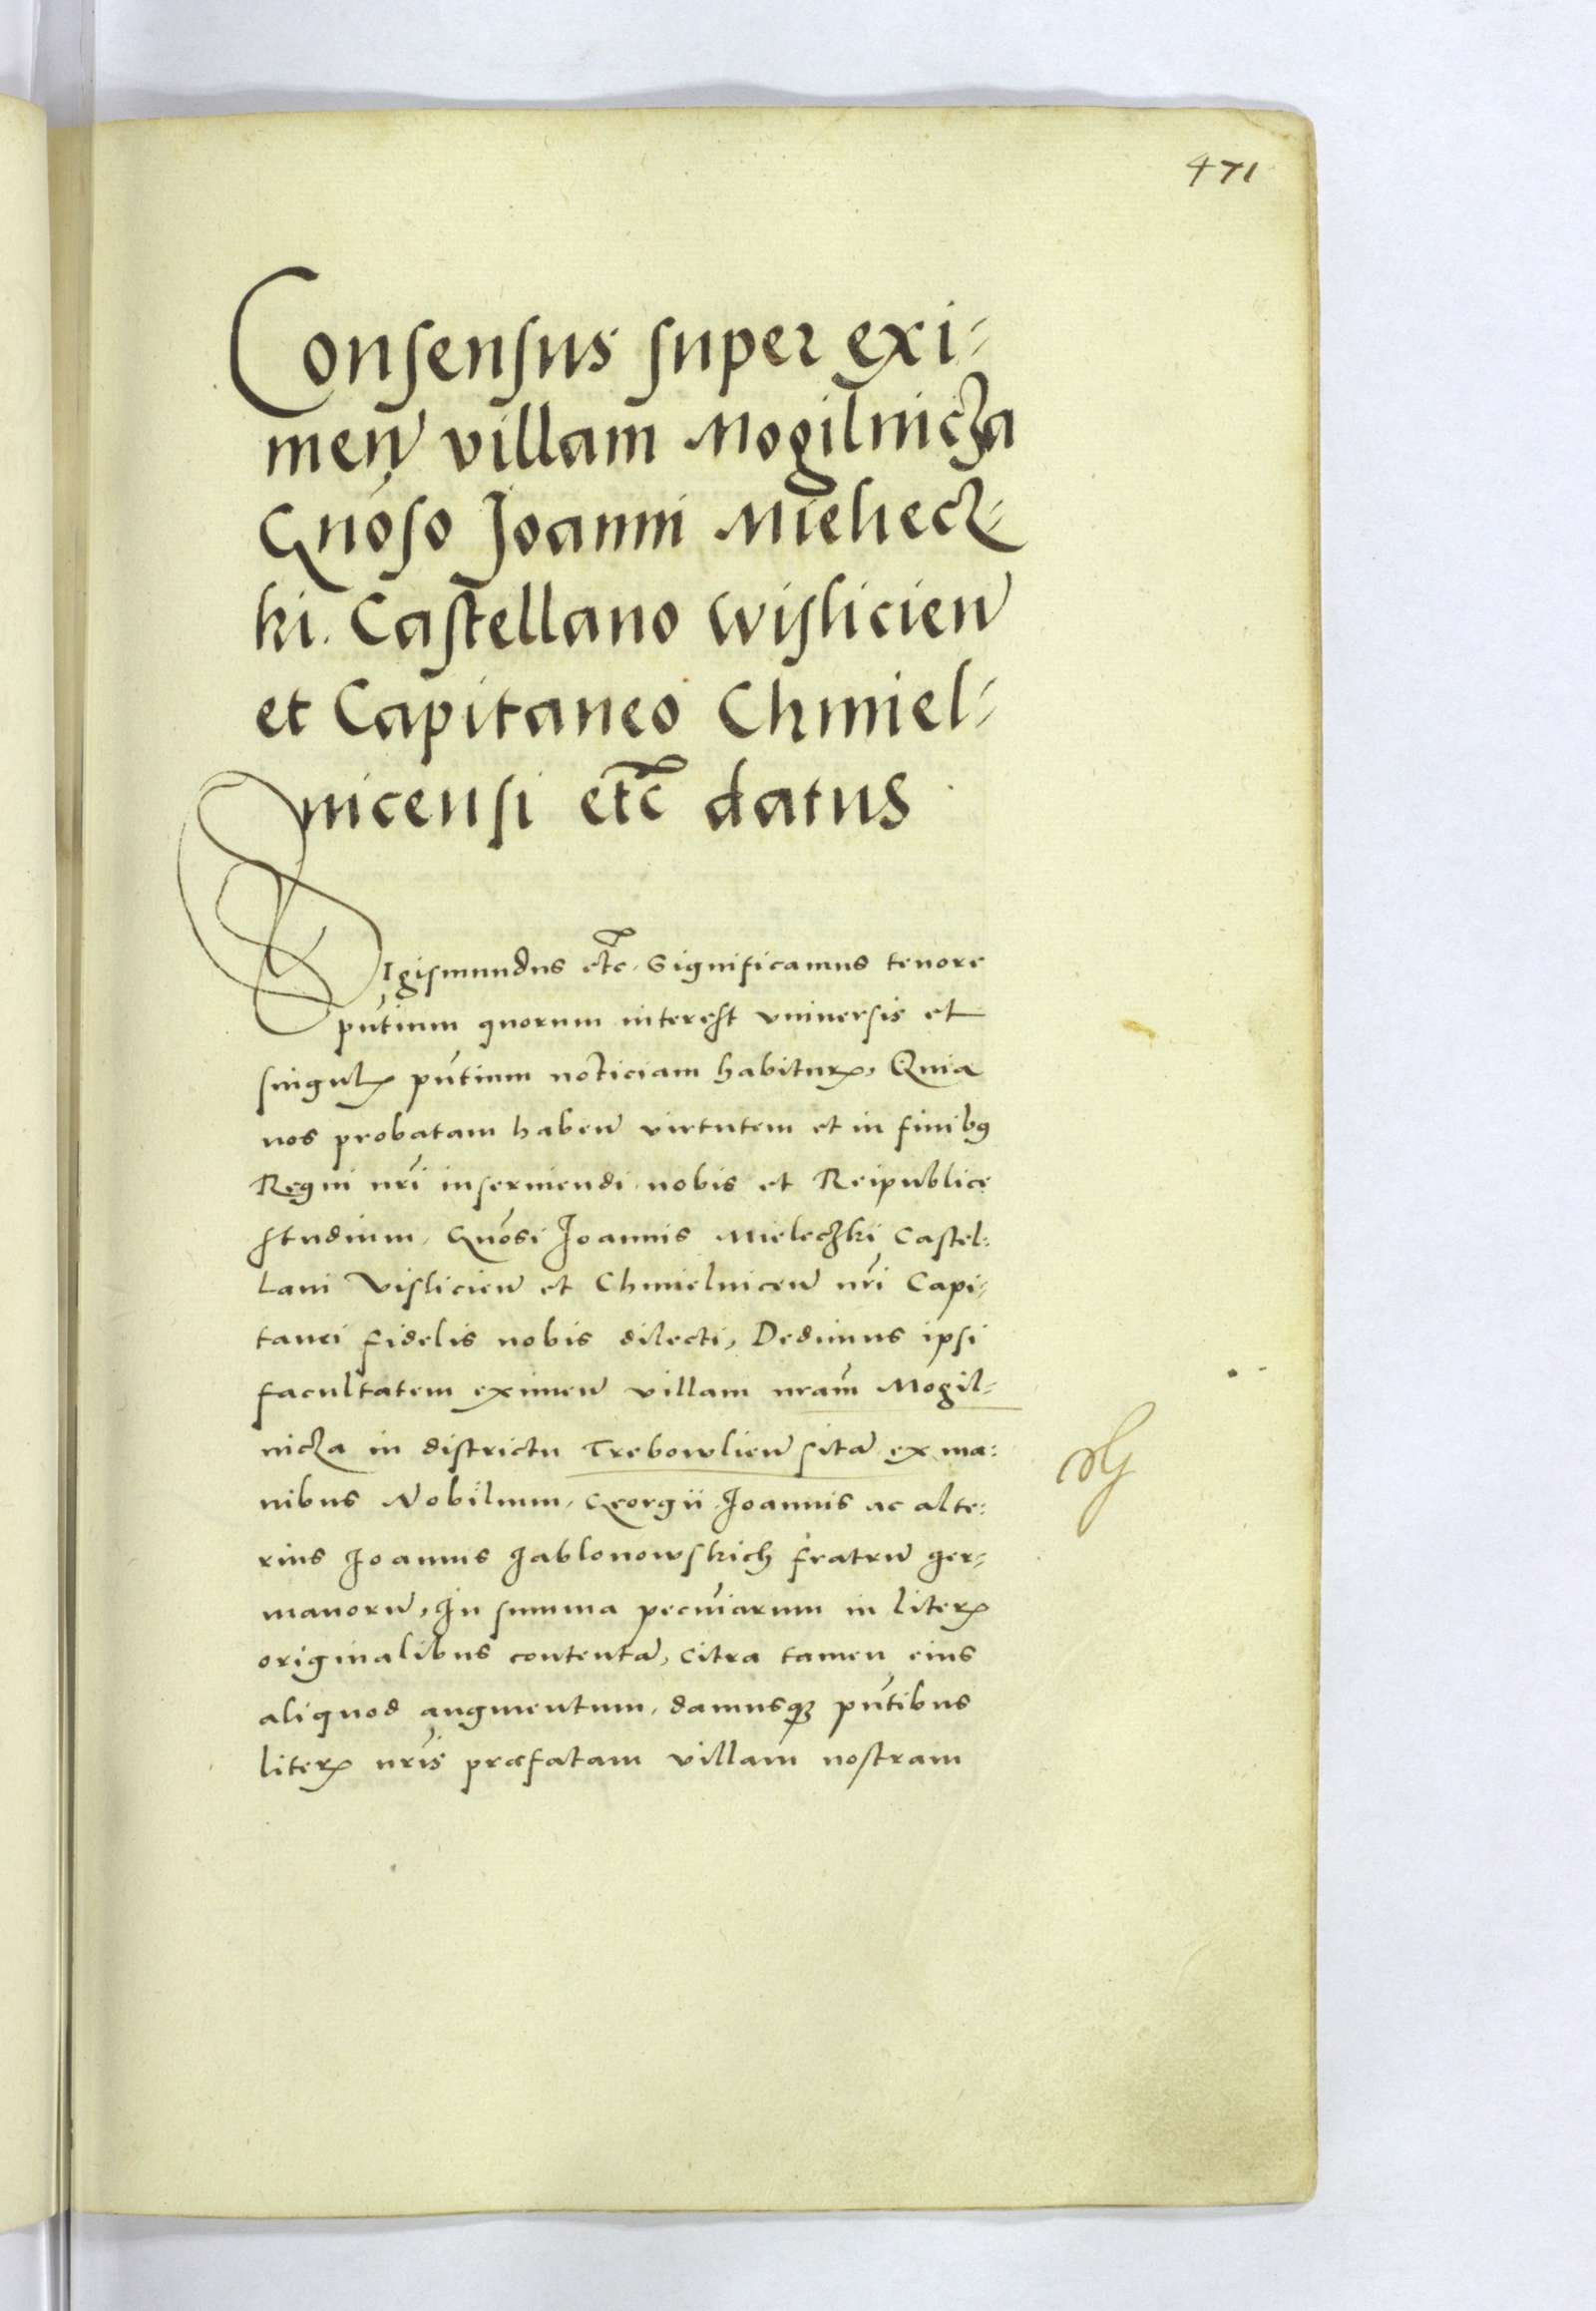 471
Consensus super exi-
men̄ villam Mogilnicza
Gn̄oso Joanni Mieliecz-
ki. Castellano Wislicien̄
et Capitaneo Chmiel-
nicensi etc datus
Sigismundus etc. Significamus tenore
pn̄tium quorum interest vniuersis et
singul̄ pn̄tium noticiam habitur̄, Quia
nos probatam haben̄ virtutem et in finibꝯ
Regni nr̄i inseruiendi nobis et Reipublicę
studium, Gn̄osi Joannis Mieleczki Castel:
lani Vislicien̄ et Chmielnicen̄ nr̄i Capi-
tanei fidelis nobis dilecti, Dedimus ipsi
facultatem eximen̄ villam nr̄am Mogil-
nicza in districtu Trebowlien̄ sitā ex ma:
nibus Nobilium, Georgii Joannis ac alte:
rius Joannis Jablonowskich fratrū ger-
manorū, In summa pecuniarum in liter̄
originalibus contentā, citra tamen eius
aliquod augmentum, damusqꝫ pn̄tibus
liter̄ nr̄is præfatam villam nostram